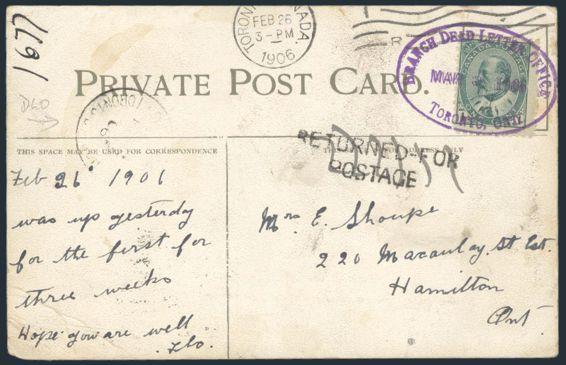 1677
DLO
TORONTO, CANADA.
FEB 26
3 - PM
1906
BRANCH DEAD LETTER OFFICE
MAR 1906
TORONTO, ONT.
PRIVATE POST CARD.
TORONTO
THIS SPACE MAY BE USED FOR CORRESPONDENCE
RETURNED FOR
POSTAGE
Feb 26 1906
was up yesterday
for the first for
three weeks
Hope you are well
Flo.
Mrs E. Shoupe
220 Macaulay St Est.
Hamilton
Ont